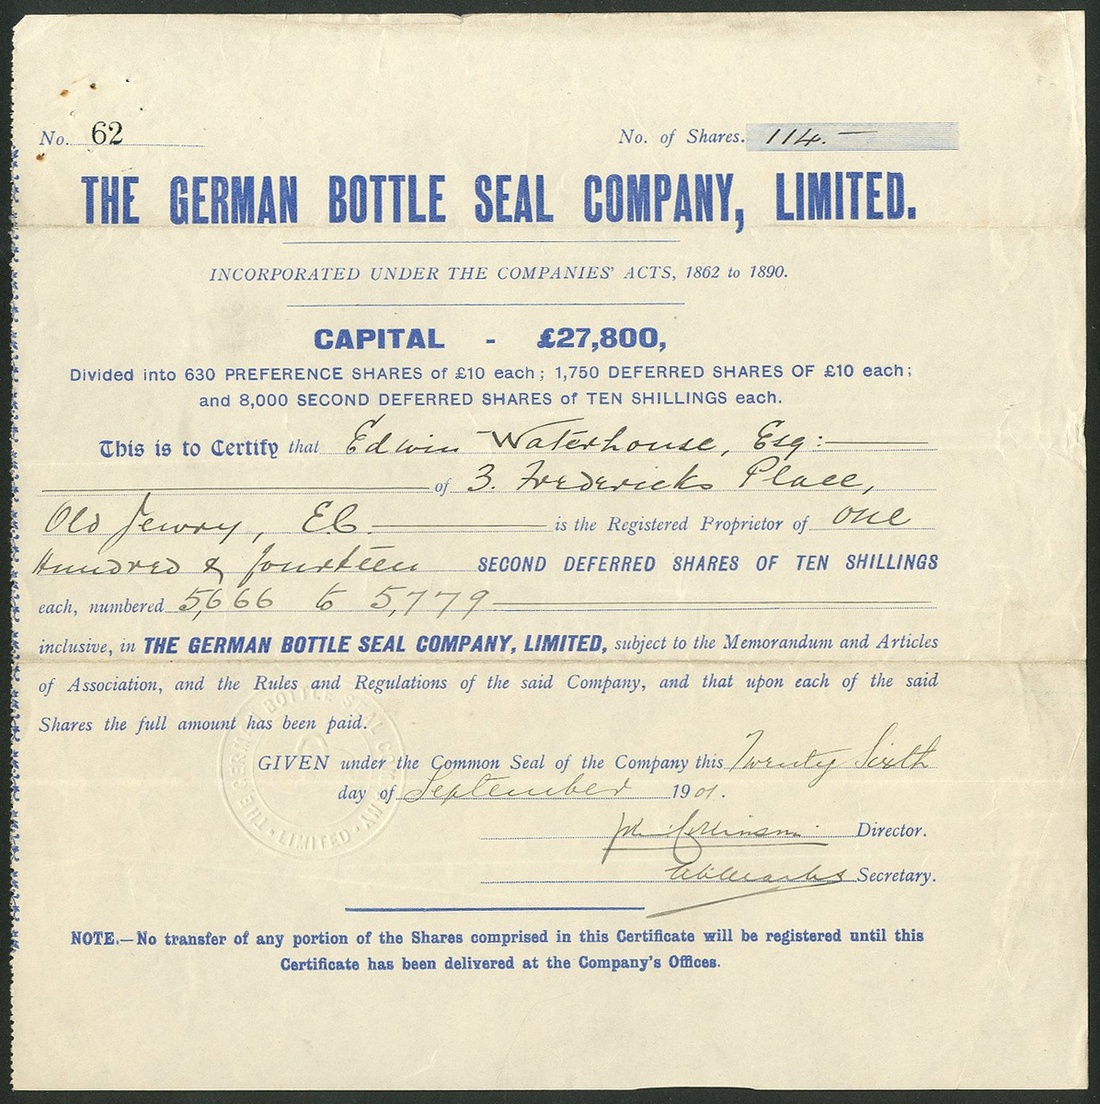 No. 62
No. of Shares. 114.—
THE GERMAN BOTTLE SEAL COMPANY, LIMITED.
INCORPORATED UNDER THE COMPANIES' ACTS, 1862 to 1890.
CAPITAL - £27,800,
Divided into 630 PREFERENCE SHARES of £10 each; 1,750 DEFERRED SHARES OF £10 each;
and 8,000 SECOND DEFERRED SHARES of TEN SHILLINGS each.
This is to Certify that Edwin Waterhouse, Esq:
of 3. Fredericks Place,
Old Jewry, E.C. is the Registered Proprietor of One
Hundred & fourteen SECOND DEFERRED SHARES OF TEN SHILLINGS
each, numbered 5,666 to 5,779
inclusive, in THE GERMAN BOTTLE SEAL COMPANY, LIMITED, subject to the Memorandum and Articles
of Association, and the Rules and Regulations of the said Company, and that upon each of the said
Shares the full amount has been paid.
GIVEN under the Common Seal of the Company this Twenty Sixth
day of September 1901.
Director.
Secretary.
THE GERMAN BOTTLE SEAL COMPANY · LIMITED ·
NOTE.—No transfer of any portion of the Shares comprised in this Certificate will be registered until this
Certificate has been delivered at the Company's Offices.